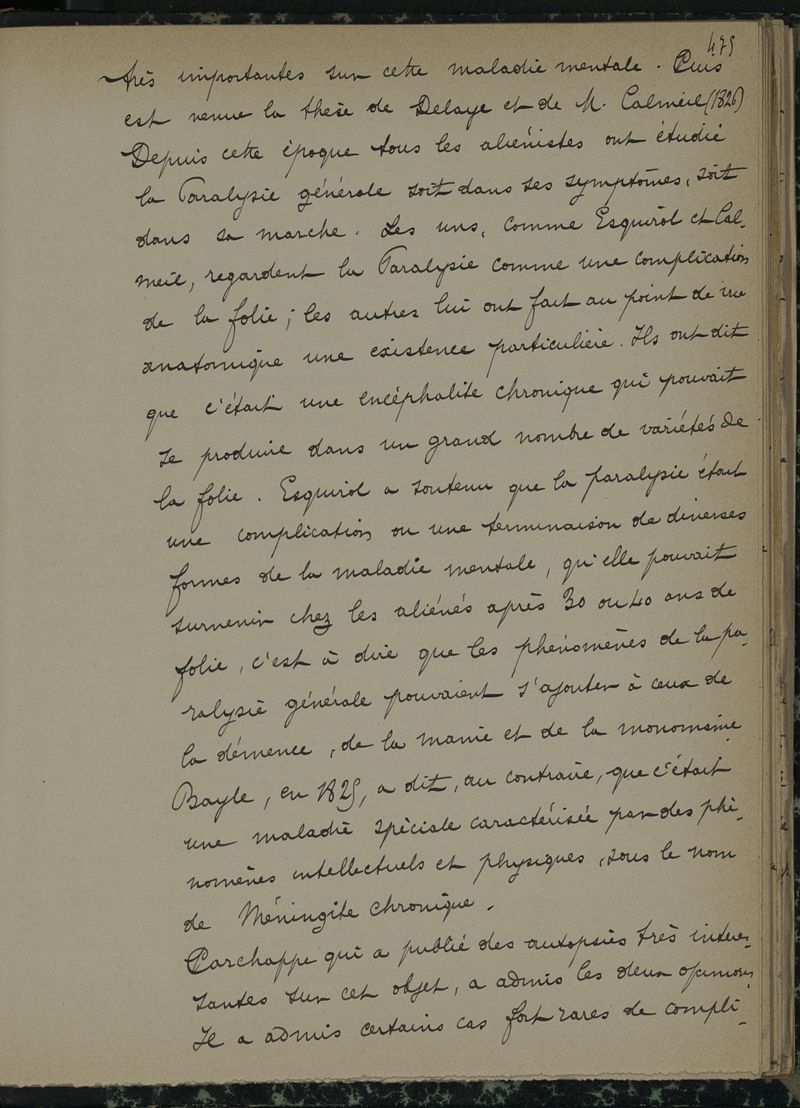 475
très importantes sur cette maladie mentale. Puis
est venue la thèse de Delaye et de M. Calmeil (1826)
Depuis cette époque tous les aliénistes ont étudié
la Paralysie générale soit dans ses symptômes, soit
dans sa marche. Les uns, comme Esquirol et Cal-
meil, regardent la Paralysie comme une complication
de la folie ; les autres lui ont fait au point de vue
anatomique une existence particulière. Ils ont dit
que c'était une encéphalite chronique qui pouvait
se produire dans un grand nombre de variétés de
la folie. Esquirol a soutenu que la paralysie était
une complication ou une terminaison de diverses
formes de la maladie mentale, qu'elle pouvait
survenir chez les aliénés après 30 ou 40 ans de
folie, c'est à dire que les phénomènes de la pa-
ralysie générale pouvaient s'ajouter à ceux de
la démence, de la manie et de la monomanie
Bayle, en 1825, a dit, au contraire, que c'était
une maladie spéciale caractérisée par des phé-
nomènes intellectuels et physiques, sous le nom
de Méningite chronique.
Parchappe qui a publié des autopsies très intéres-
santes sur cet objet, a admis les deux opinions
Il a admis certains cas fort rares de compli-